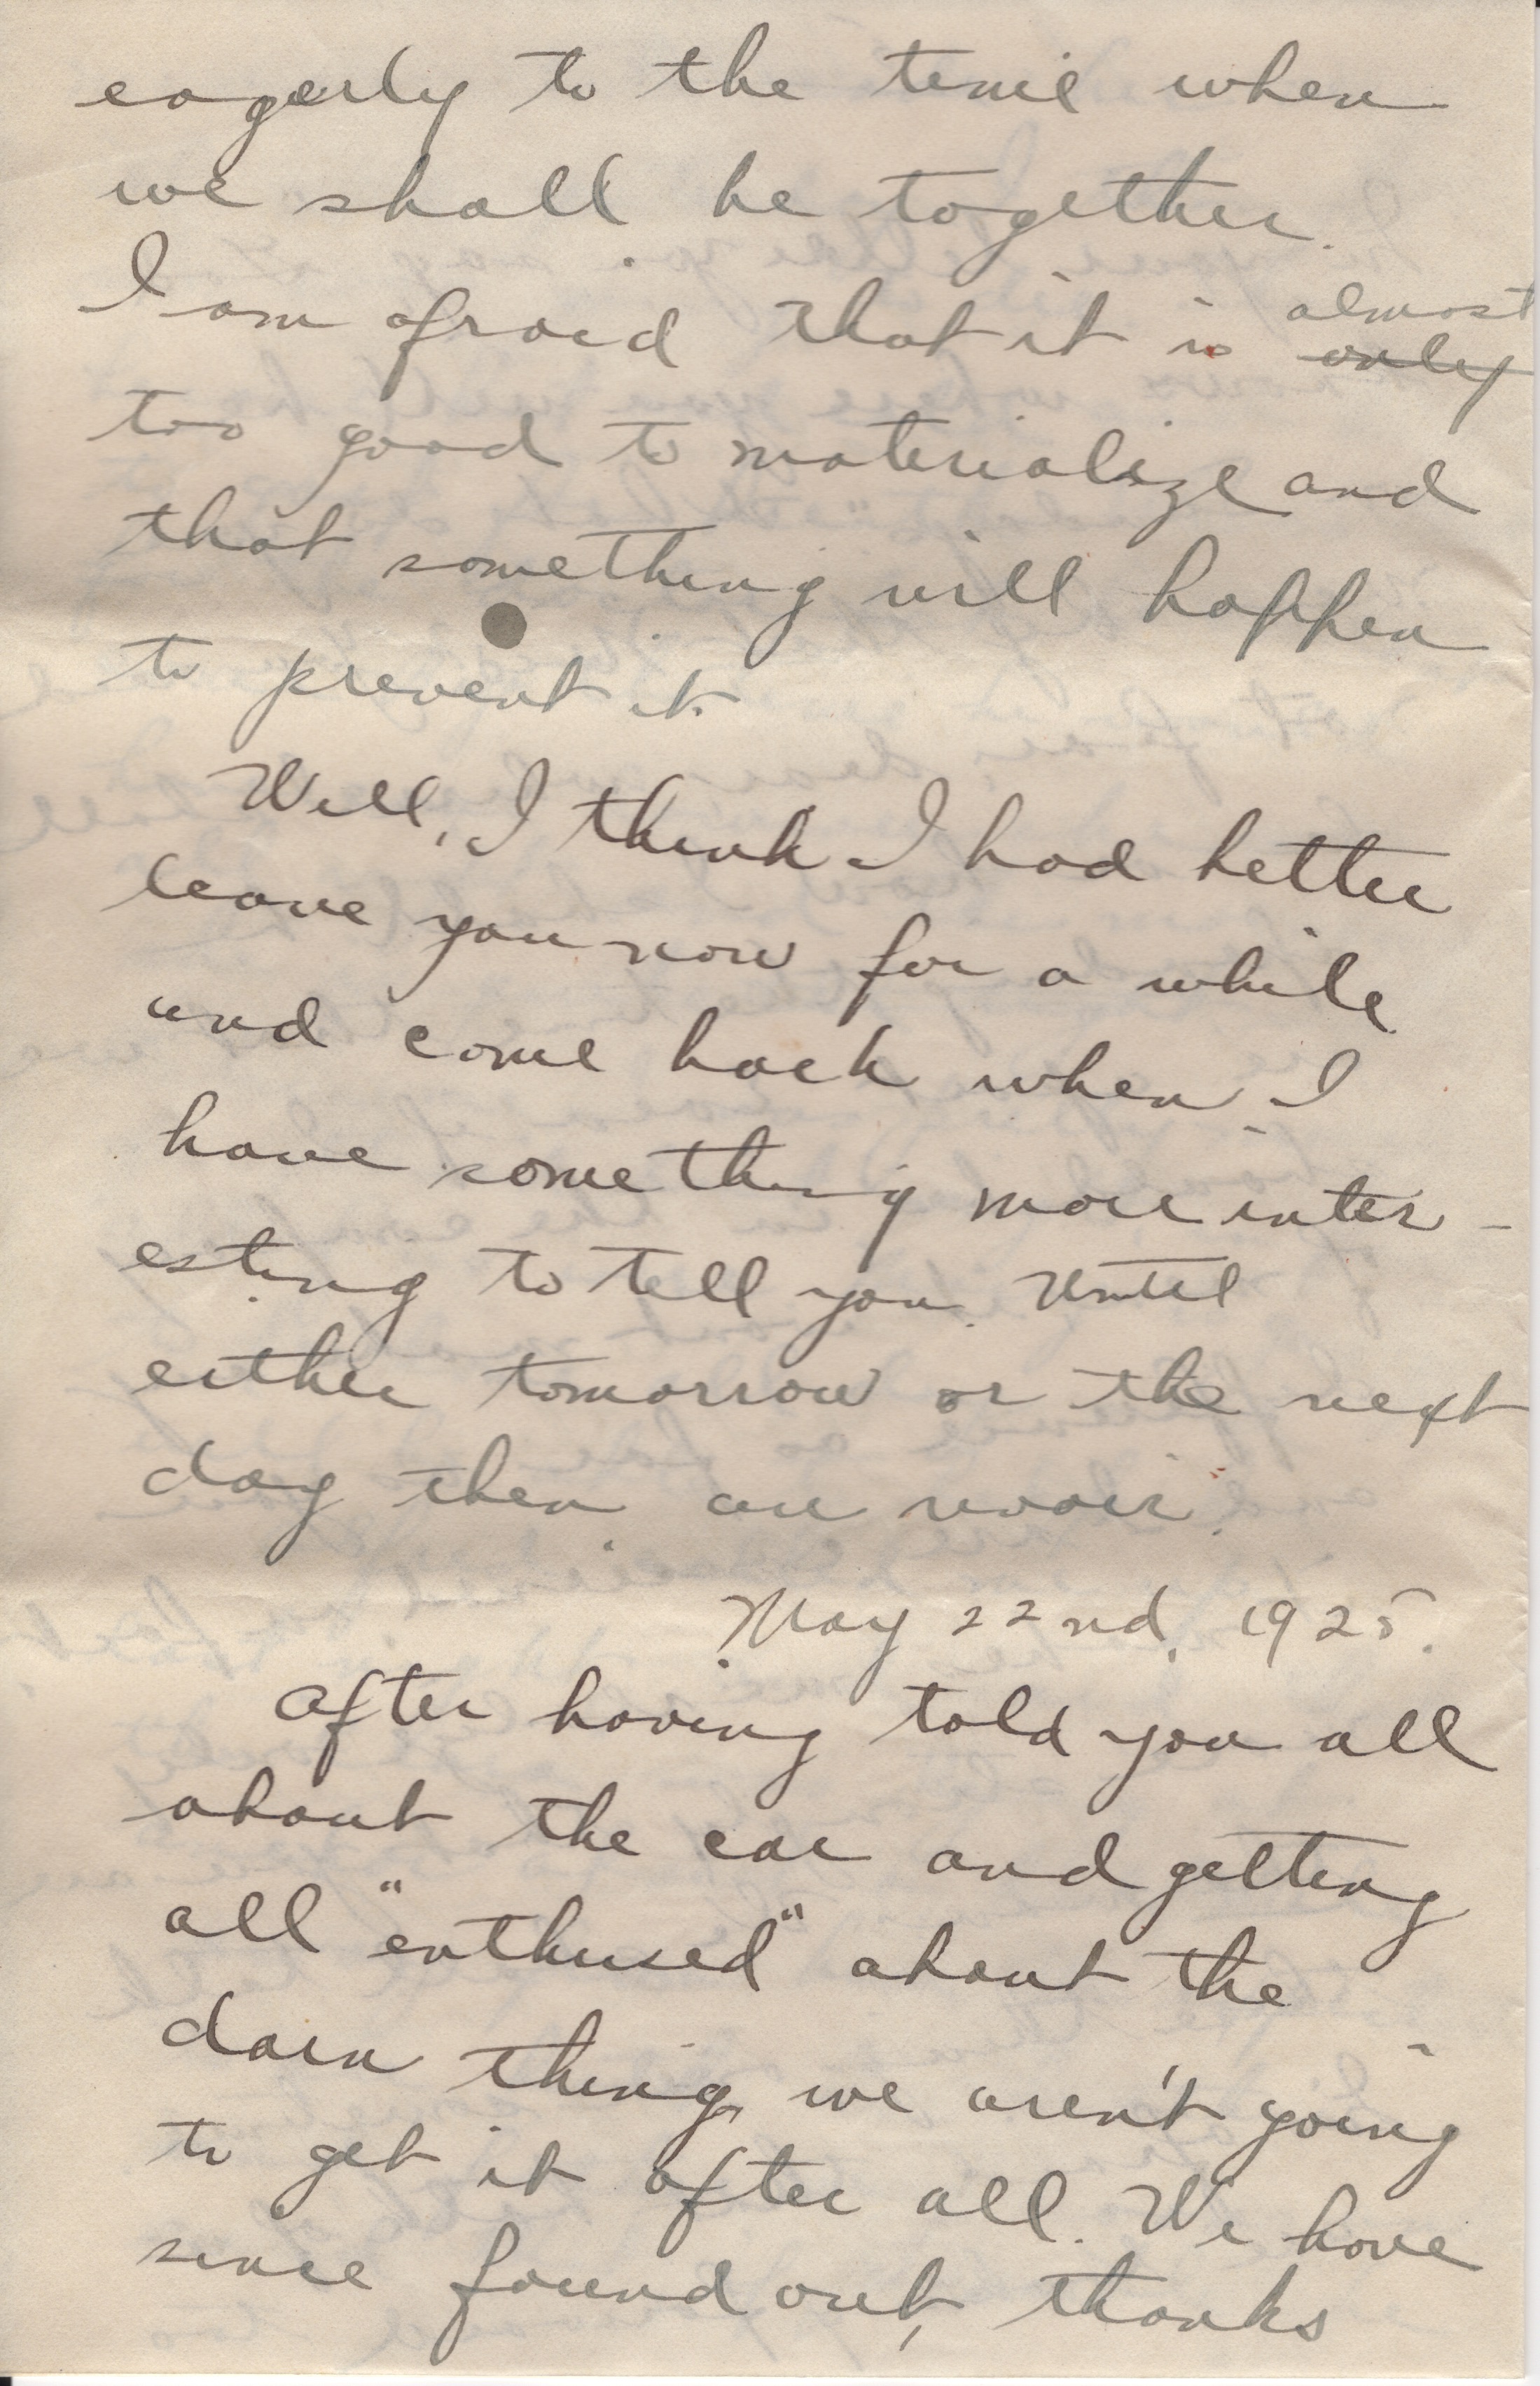 eagerly to the time when
we shall be together.
I am afraid that it is almost
only
too good to materialize and
that something will happen
to prevent it.
Well, I think I had better
leave you now for a while
and come back when I
have something more inter-
esting to tell you. Until
either tomorrow or the next
day then au revoir.
May 22nd, 1925.
After having told you all
about the car and getting
all "enthused" about the
darn thing, we aren't going
to get it after all. We have
since found out, thanks